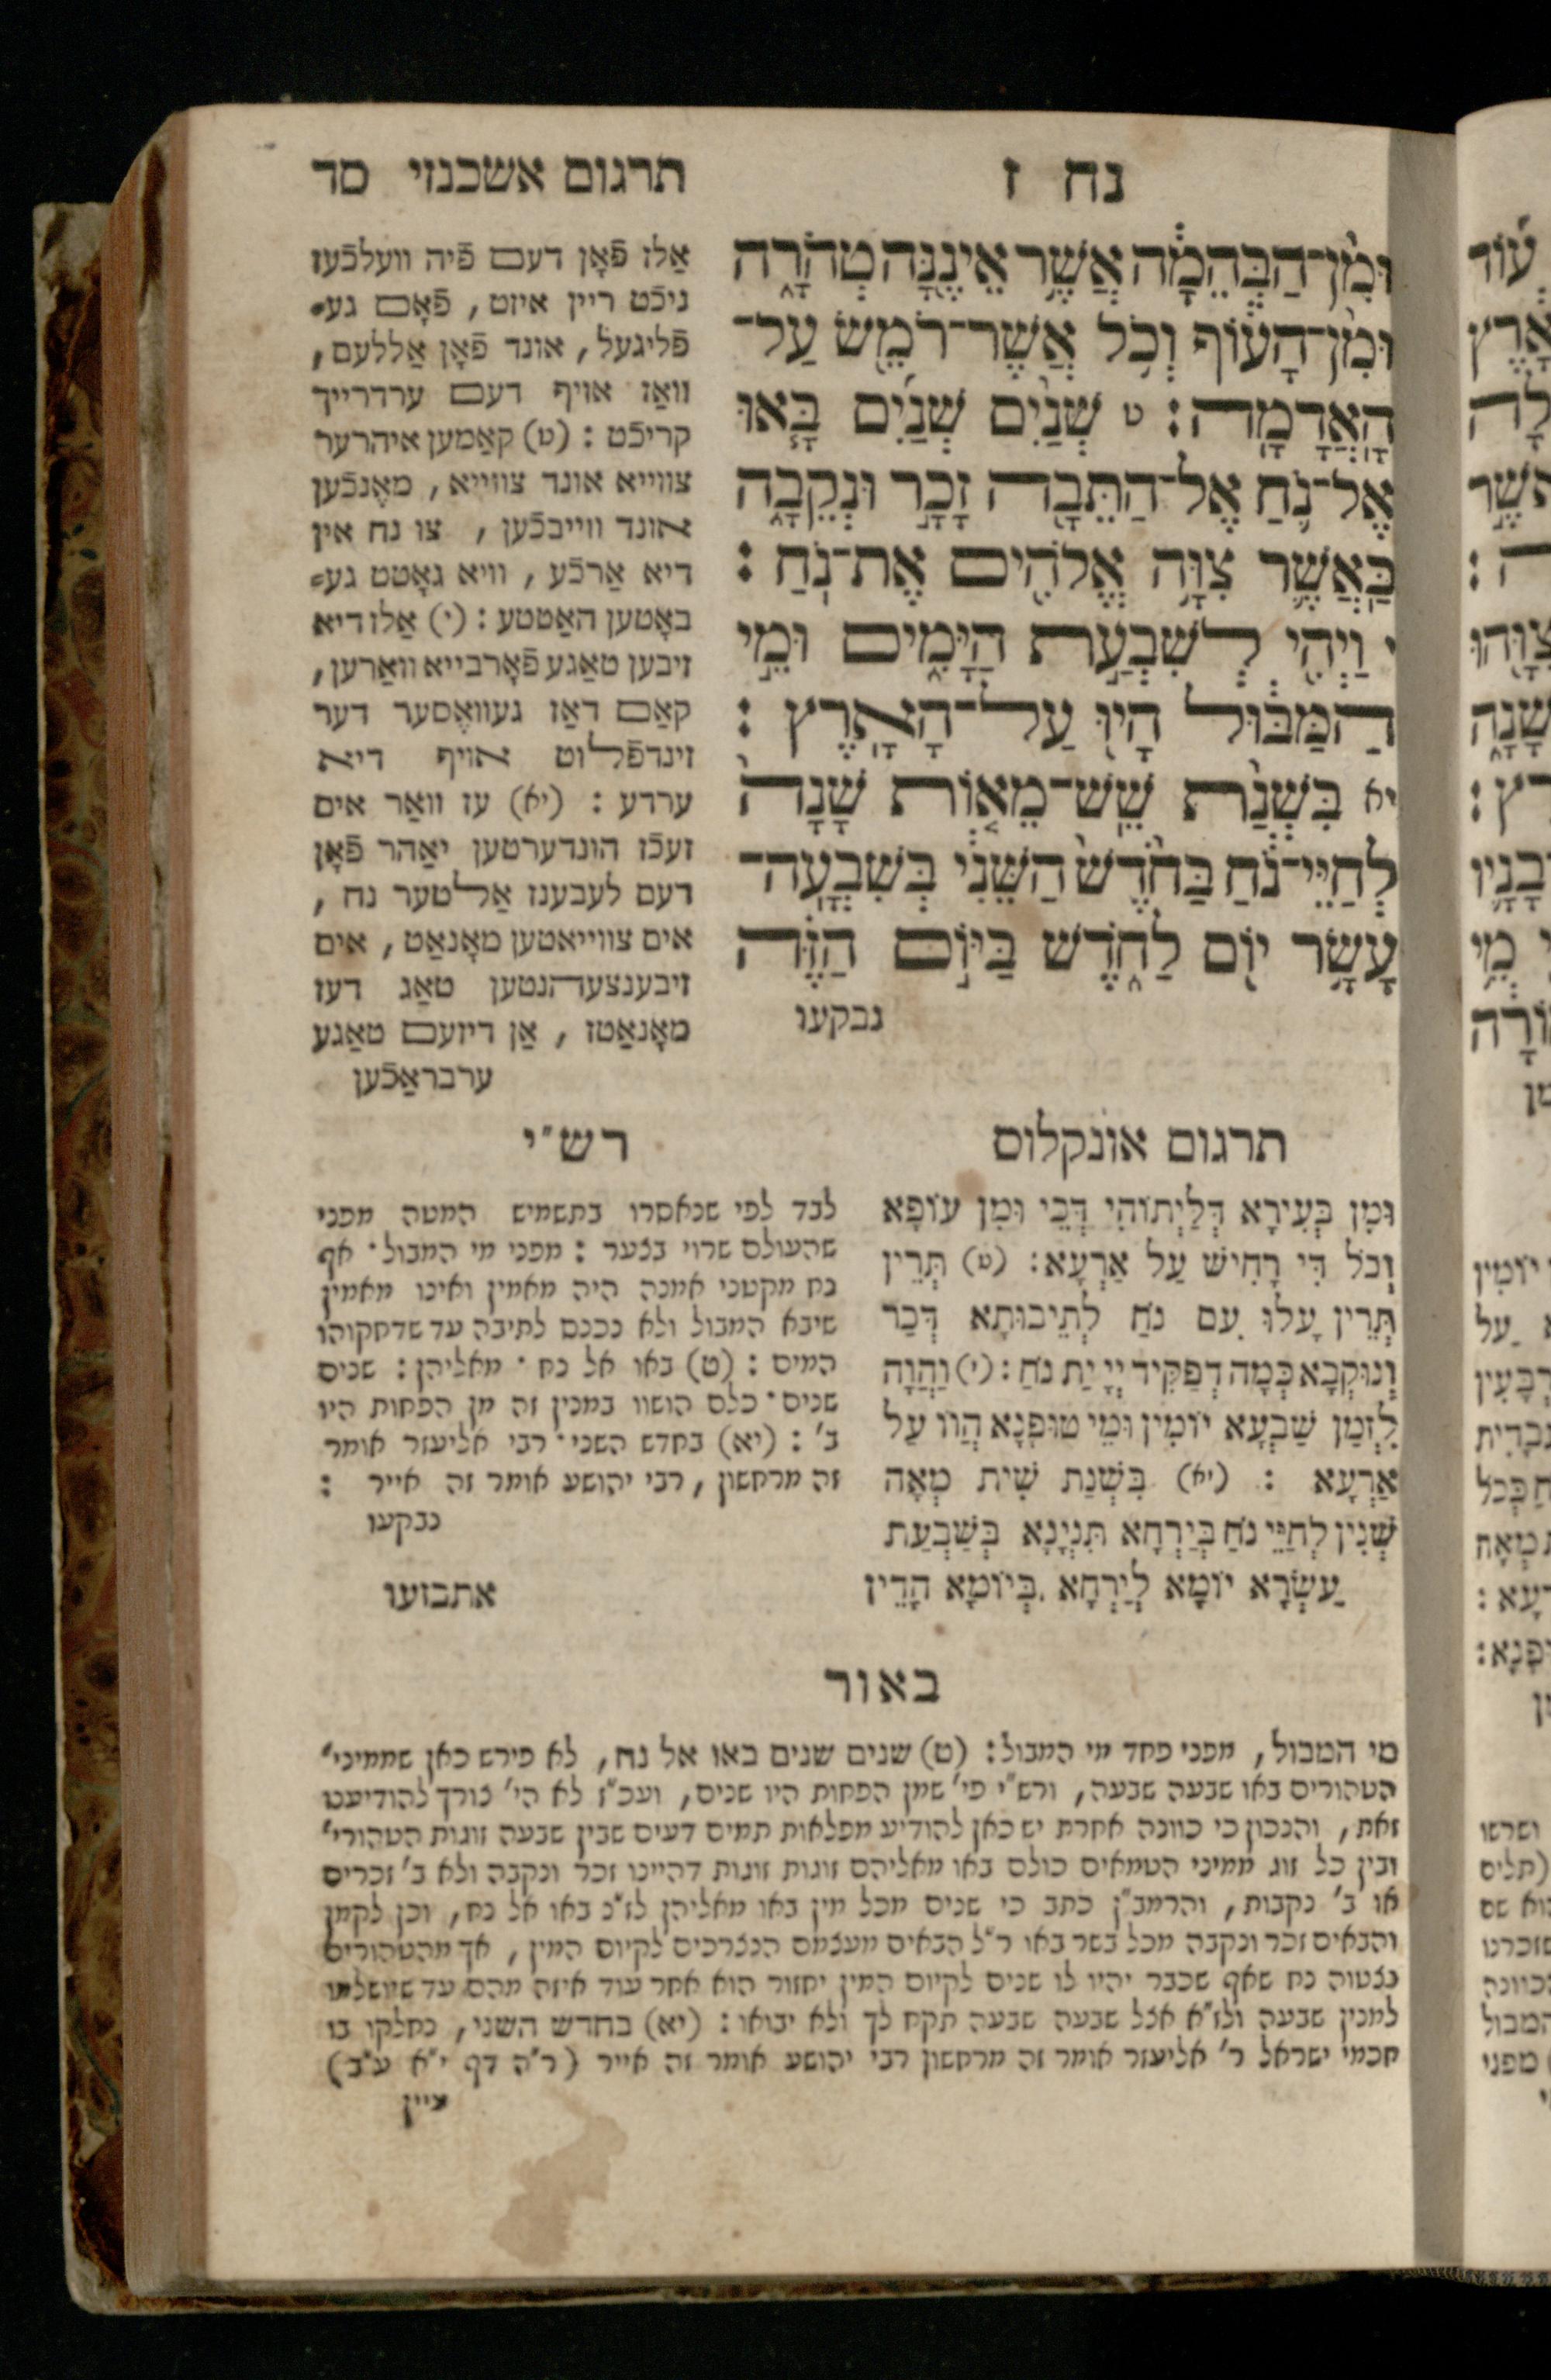 נח ז
תרגום אשכנזי סד
וּמִן־הַבְּהֵמָה אֲשֶׁר אֵינֶנָּה טְהֹרָה
וּמִן־הָעוֹף וְכֹל אֲשֶׁר־רֹמֵשׂ עַל־
הָאֲדָמָה: ט שְׁנַיִם שְׁנַיִם בָּאוּ
אֶל־נֹחַ אֶל־הַתֵּבָה זָכָר וּנְקֵבָה
כַּאֲשֶׁר צִוָּה אֱלֹהִים אֶת־נֹחַ:
י וַיְהִי לְשִׁבְעַת הַיָּמִים וּמֵי
הַמַּבּוּל הָיוּ עַל־הָאָרֶץ:
יא בִּשְׁנַת שֵׁשׁ־מֵאוֹת שָׁנָה
לְחַיֵּי־נֹחַ בַּחֹדֶשׁ הַשֵּׁנִי בְּשִׁבְעָה־
עָשָׂר יוֹם לַחֹדֶשׁ בַּיּוֹם הַזֶּה
נבקעו
אַלז פֿאָן דעם פֿיה וועלכֿעז
ניכֿט ריין איזט, פֿאָם גע־
פֿליגעל, אונד פֿאָן אַללעם,
וואַז אויף דעם ערדרייך
קריכֿט: (ט) קאַמען איהרער
צווייא אונד צווייא, מאֶנכֿען
אונד ווייבכֿען, צו נח אין
דיא אַרכֿע, וויא גאָטט גע־
באָטען האַטטע: (י) אַלז דיא
זיבען טאַגע פֿאָרבייא וואַרען,
קאַם דאַז געוואֶסער דער
זינדפֿלוט אויף דיא
ערדע: (יא) עז וואַר אים
זעכֿז הונדערטען יאַהר פֿאָן
דעם לעבענז אַלטער נח,
אים צווייאטען מאָנאַט, אים
זיבענצעהנטען טאַג דעז
מאָנאַטז, אַן דיזעם טאַגע
ערבראַכֿען
תרגום אונקלוס
וּמִן בְּעִירָא דְּלַיְתוֹהִי דְּכֵי וּמִן עוֹפָא
וְכֹל דִּי רָחִישׁ עַל אַרְעָא: (ט) תְּרֵין
תְּרֵין עָלוּ עִם נֹחַ לְתֵיבוּתָא דְּכַר
וְנוּקְבָא כְּמָה דְפַקִּיד יְיָ יַת נֹחַ: (י) וַהֲוָה
לִזְמַן שַׁבְעָא יוֹמִין וּמֵי טוּפְנָא הֲווֹ עַל
אַרְעָא: (יא) בִּשְׁנַת שִׁית מְאָה
שְׁנִין לְחַיֵּי נֹחַ בְּיַרְחָא תִּנְיָנָא בְּשַׁבְעַת
עַשְׂרָא יוֹמָא לְיַרְחָא בְּיוֹמָא הָדֵין
אתבזעו
רש״י
לבד לפי שנאסרו בתשמיש המטה מפני
שהעולם שרוי בצער: מפני מי המבול· אף
נח מקטני אמנה היה מאמין ואינו מאמין
שיבא המבול ולא נכנס לתיבה עד שדחקוהו
המים: (ט) באו אל נח· מאליהן: שנים
שנים· כלם הושוו במנין זה מן הפחות היו
ב׳: (יא) בחדש השני· רבי אליעזר אומר
זה מרחשון, רבי יהושע אומר זה אייר:
נבקעו
באור
מי המבול, מפני פחד מי המבול: (ט) שנים שנים באו אל נח, לא פירש כאן שממיני׳
הטהורים באו שבעה שבעה, ורש״י פי׳ שמן הפחות היו שנים, ועכ״ז לא הי׳ צורך להודיענו
זאת, והנכון כי כוונה אחרת יש כאן להודיע מפלאות תמים דעים שבין שבעה זוגות הטהורי׳
ובין כל זוג ממיני הטמאים כולם באו מאליהם זוגות זוגות דהיינו זכר ונקבה ולא ב׳ זכרים
או ב׳ נקבות, והרמב״ן כתב כי שנים מכל מין באו מאליהן לז״נ באו אל נח, וכן לקמן
והבאים זכר ונקבה מכל בשר באו ר״ל הבאים מעצמם הנצרכים לקיום המין, אך מהטהורים
נצטוה נח שאף שכבר יהיו לו שנים לקיום המין יחזור הוא אחר עוד איזה מהם עד שיושלמו
למנין שבעה ולז״א אצל שבעה שבעה תקח לך ולא יבואו: (יא) בחדש השני, נחלקו בו
חכמי ישראל ר׳ אליעזר אומר זה מרחשון רבי יהושע אומר זה אייר (ר״ה דף י״א ע״ב)
עיין